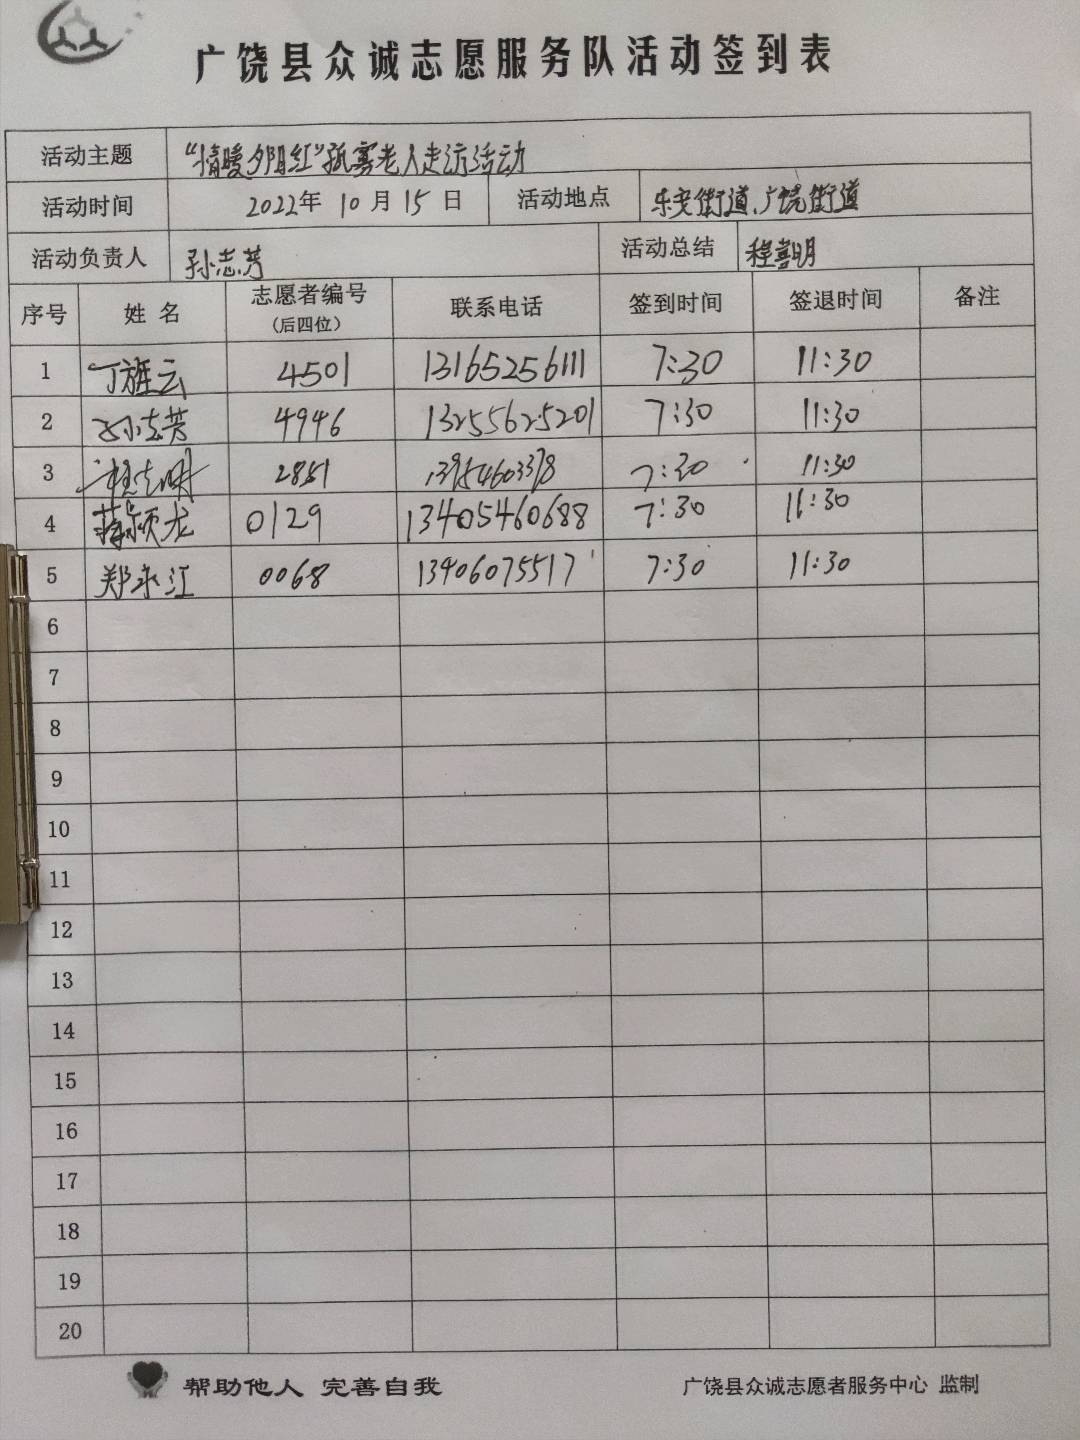 广饶县众诚志愿服务队活动签到表
活动主题 “情暖夕阳红”孤寡老人走访活动
活动时间 2022年 10月 15日 活动地点 乐安街道、广饶街道
活动负责人 孙志芳 活动总结 程喜明
序号 姓名 志愿者编号（后四位） 联系电话 签到时间 签退时间 备注
1 丁旌云 4501 13165256111 7:30 11:30
2 孙志芳 4946 13255625201 7:30 11:30
3 2851 13954603378 7:30 11:30
4 龙 0129 13405460688 7:30 11:30
5 郑永江 0068 13406075517 7:30 11:30
6
7
8
9
10
11
12
13
14
15
16
17
18
19
20
帮助他人 完善自我 广饶县众诚志愿者服务中心 监制